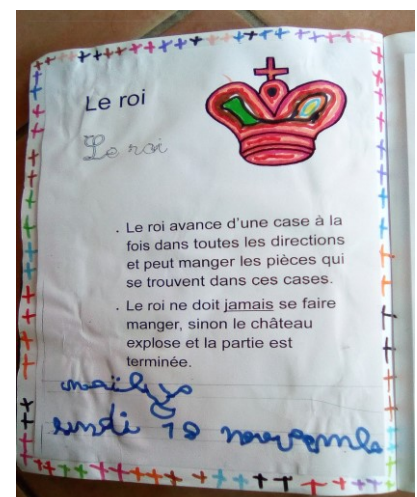 Le roi
Le roi
. Le roi avance d'une case à la
fois dans toutes les directions
et peut manger les pièces qui
se trouvent dans ces cases.
. Le roi ne doit jamais se faire
manger, sinon le château
explose et la partie est
terminée.
maëlys